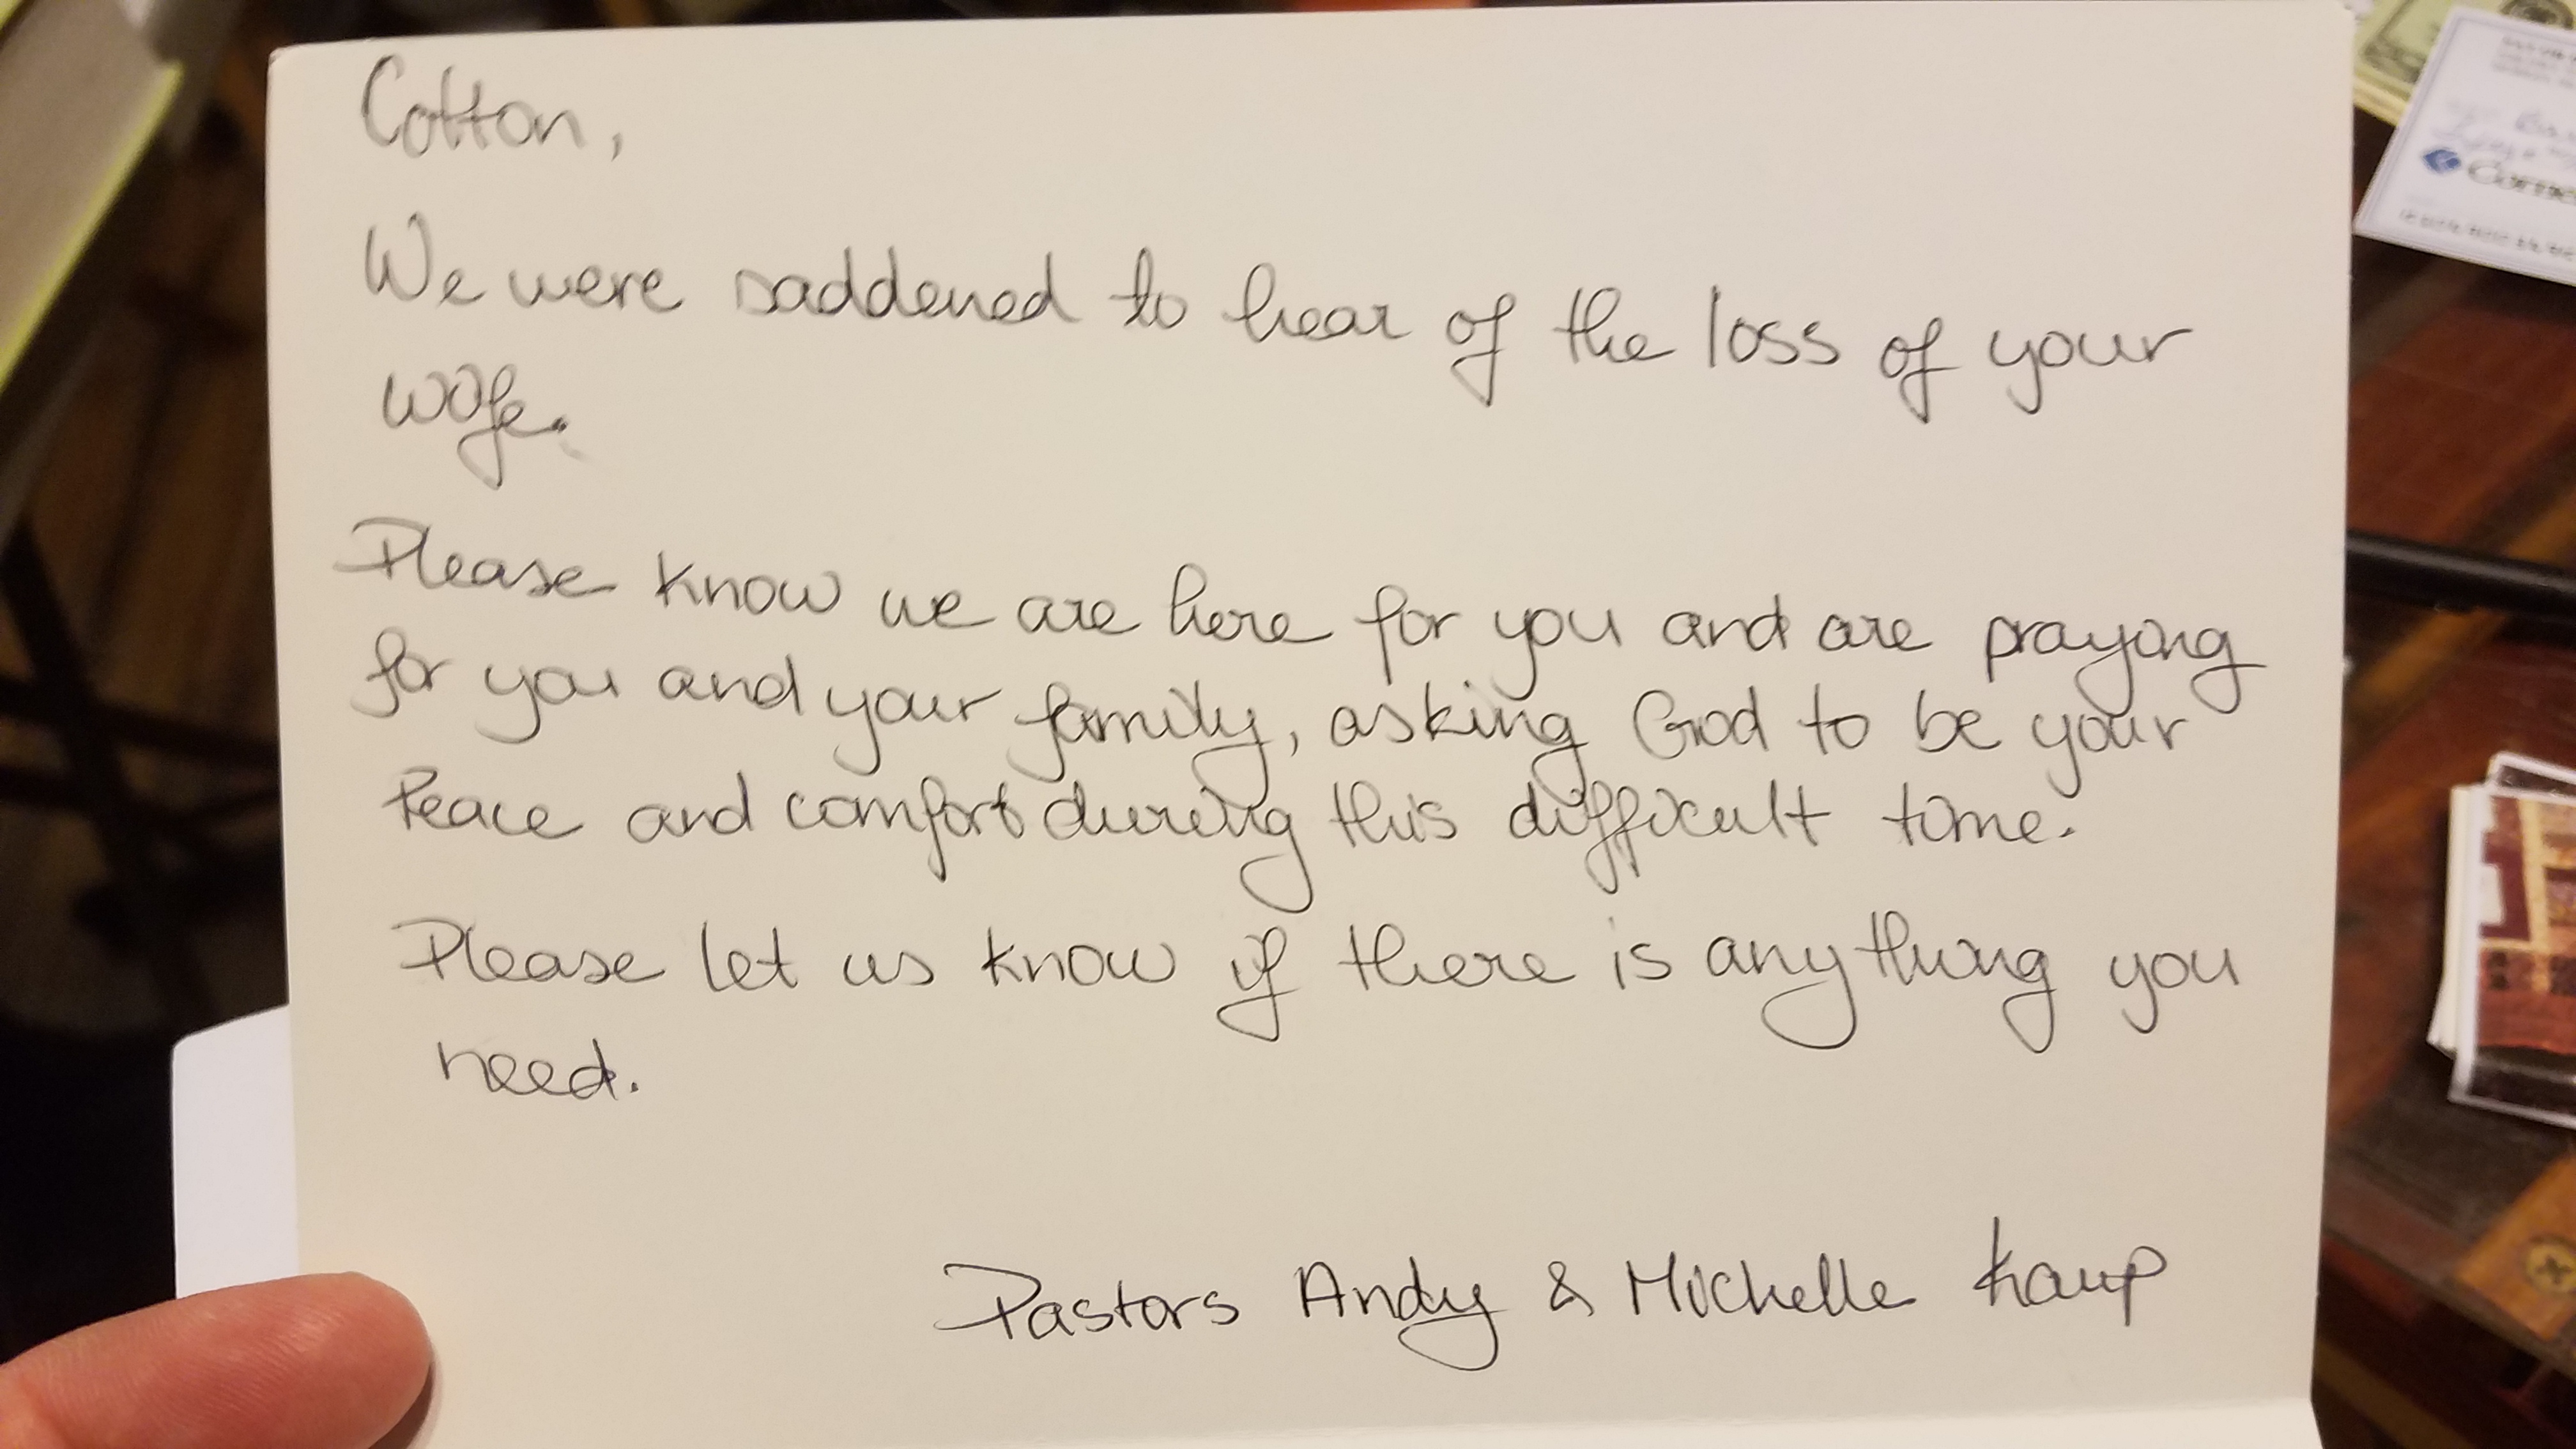 Cotton,
We were saddened to hear of the loss of your
wife.
Please know we are here for you and are praying
for you and your family, asking God to be your
Peace and comfort during this difficult time.
Please let us know if there is anything you
need.
Pastors Andy & Michelle Kaup